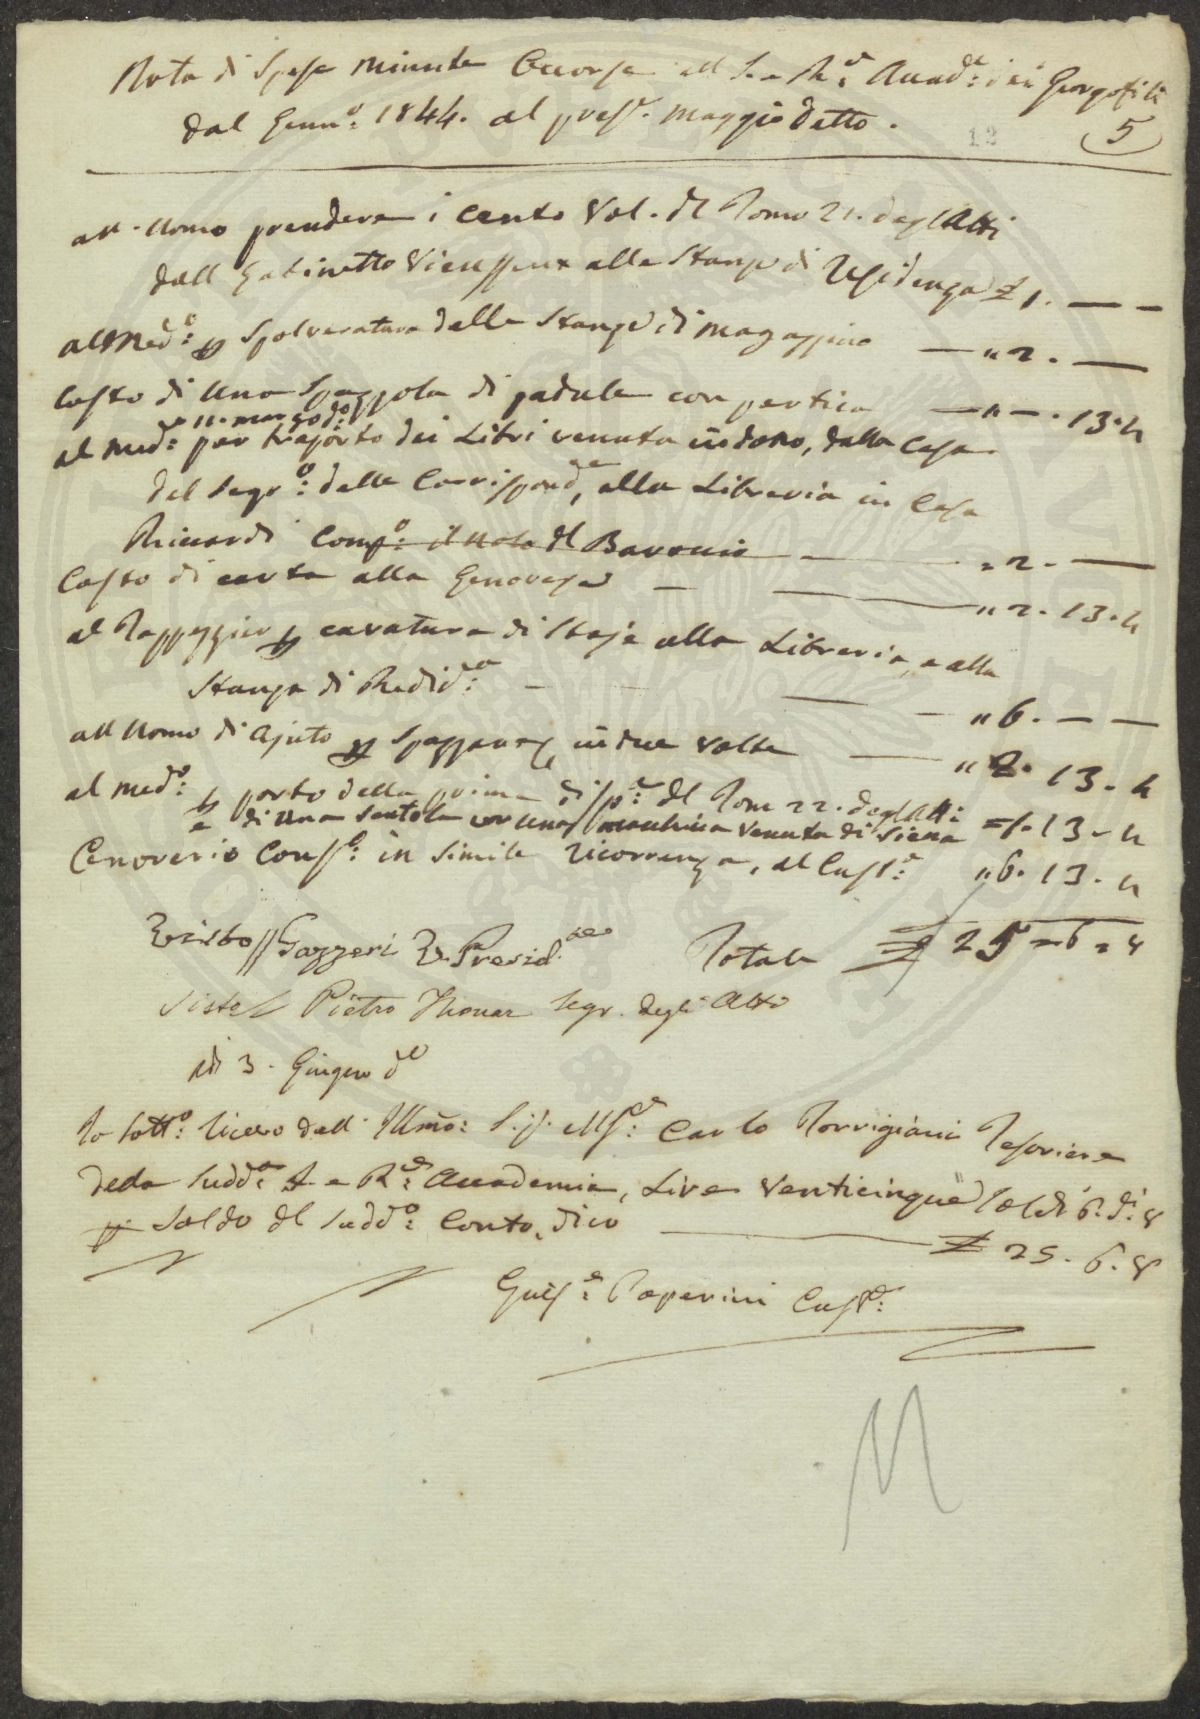 Nota di Spese Minute Occorse all I. e R.e Accad.a dei Georgofili
dal Genn.o 1844. al pres.e Maggio detto.
12
5
all'Uomo prendere i cento Vol. del Tomo 21. degl'Atti
dall Gabinetto Vieusseux alle Stanze di Residenza £ 1. — —
al Med.o p Spolveratura delle Stanze di Magazzino — " 2. —
Costo di Una Spazzola di padule con pertica — " — . 13. 4
11. marzo d.o
al Med.o per trasporto dei Libri venuti in dono, dalla Casa
del Segr.o delle Corrispond.e, alla Libreria in Casa
Riccardi Comp.o il Nolo del Baroccio — = 2. —
Costo di carta alla Genovese — " 2. 13. 4
al Tappezziere p cavatura di Stoje alla Libreria, e alla
Stanza di Resid.a — " 6. — —
all Uomo di Ajuto p Spazzare in due volte — " 2. 13. 4
al Med.o p porto della prima disp.a del Tom 22. degl'Atti
e di Una Scatola con Una Macchina Venuta di Siena = 1. 13. 4
Onorario Cons.o in Simile Ricorrenza, al Cust.e " 6. 13. 4
Visto Gazzeri V. Presid.te Totale £ 25 = 6 = 8
Visto Pietro Thouar Segr. degli Atti
Adì 3. Giugno d.o
Io Sott.o Ricevo dall' Illmo: Sig. Mse: Carlo Torrigiani Tesoriere
della Sudd.a I. e R.e Accademia, Lire Venticinque Soldi 6. d. 8
p Saldo del Sudd.o Conto, dico — £ 25. 6. 8
Guis.e Paperini Cust.e